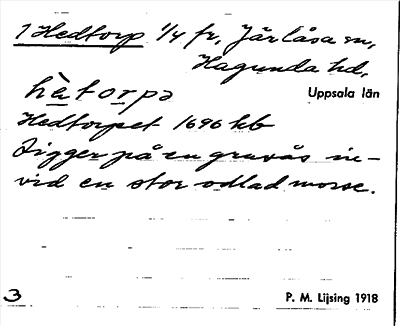 1 Hedtorp 1/4 fr, Järlåsa sn,
Hagunda hd,
Uppsala län
hètorpə
Hedtorpet 1696 kb
Ligger på en grusås in-
vid en stor odlad mosse.
3
P. M. Lijsing 1918